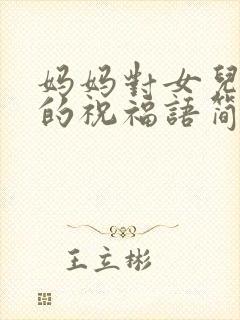 妈妈對女兒
的祝福語簡
王立彬